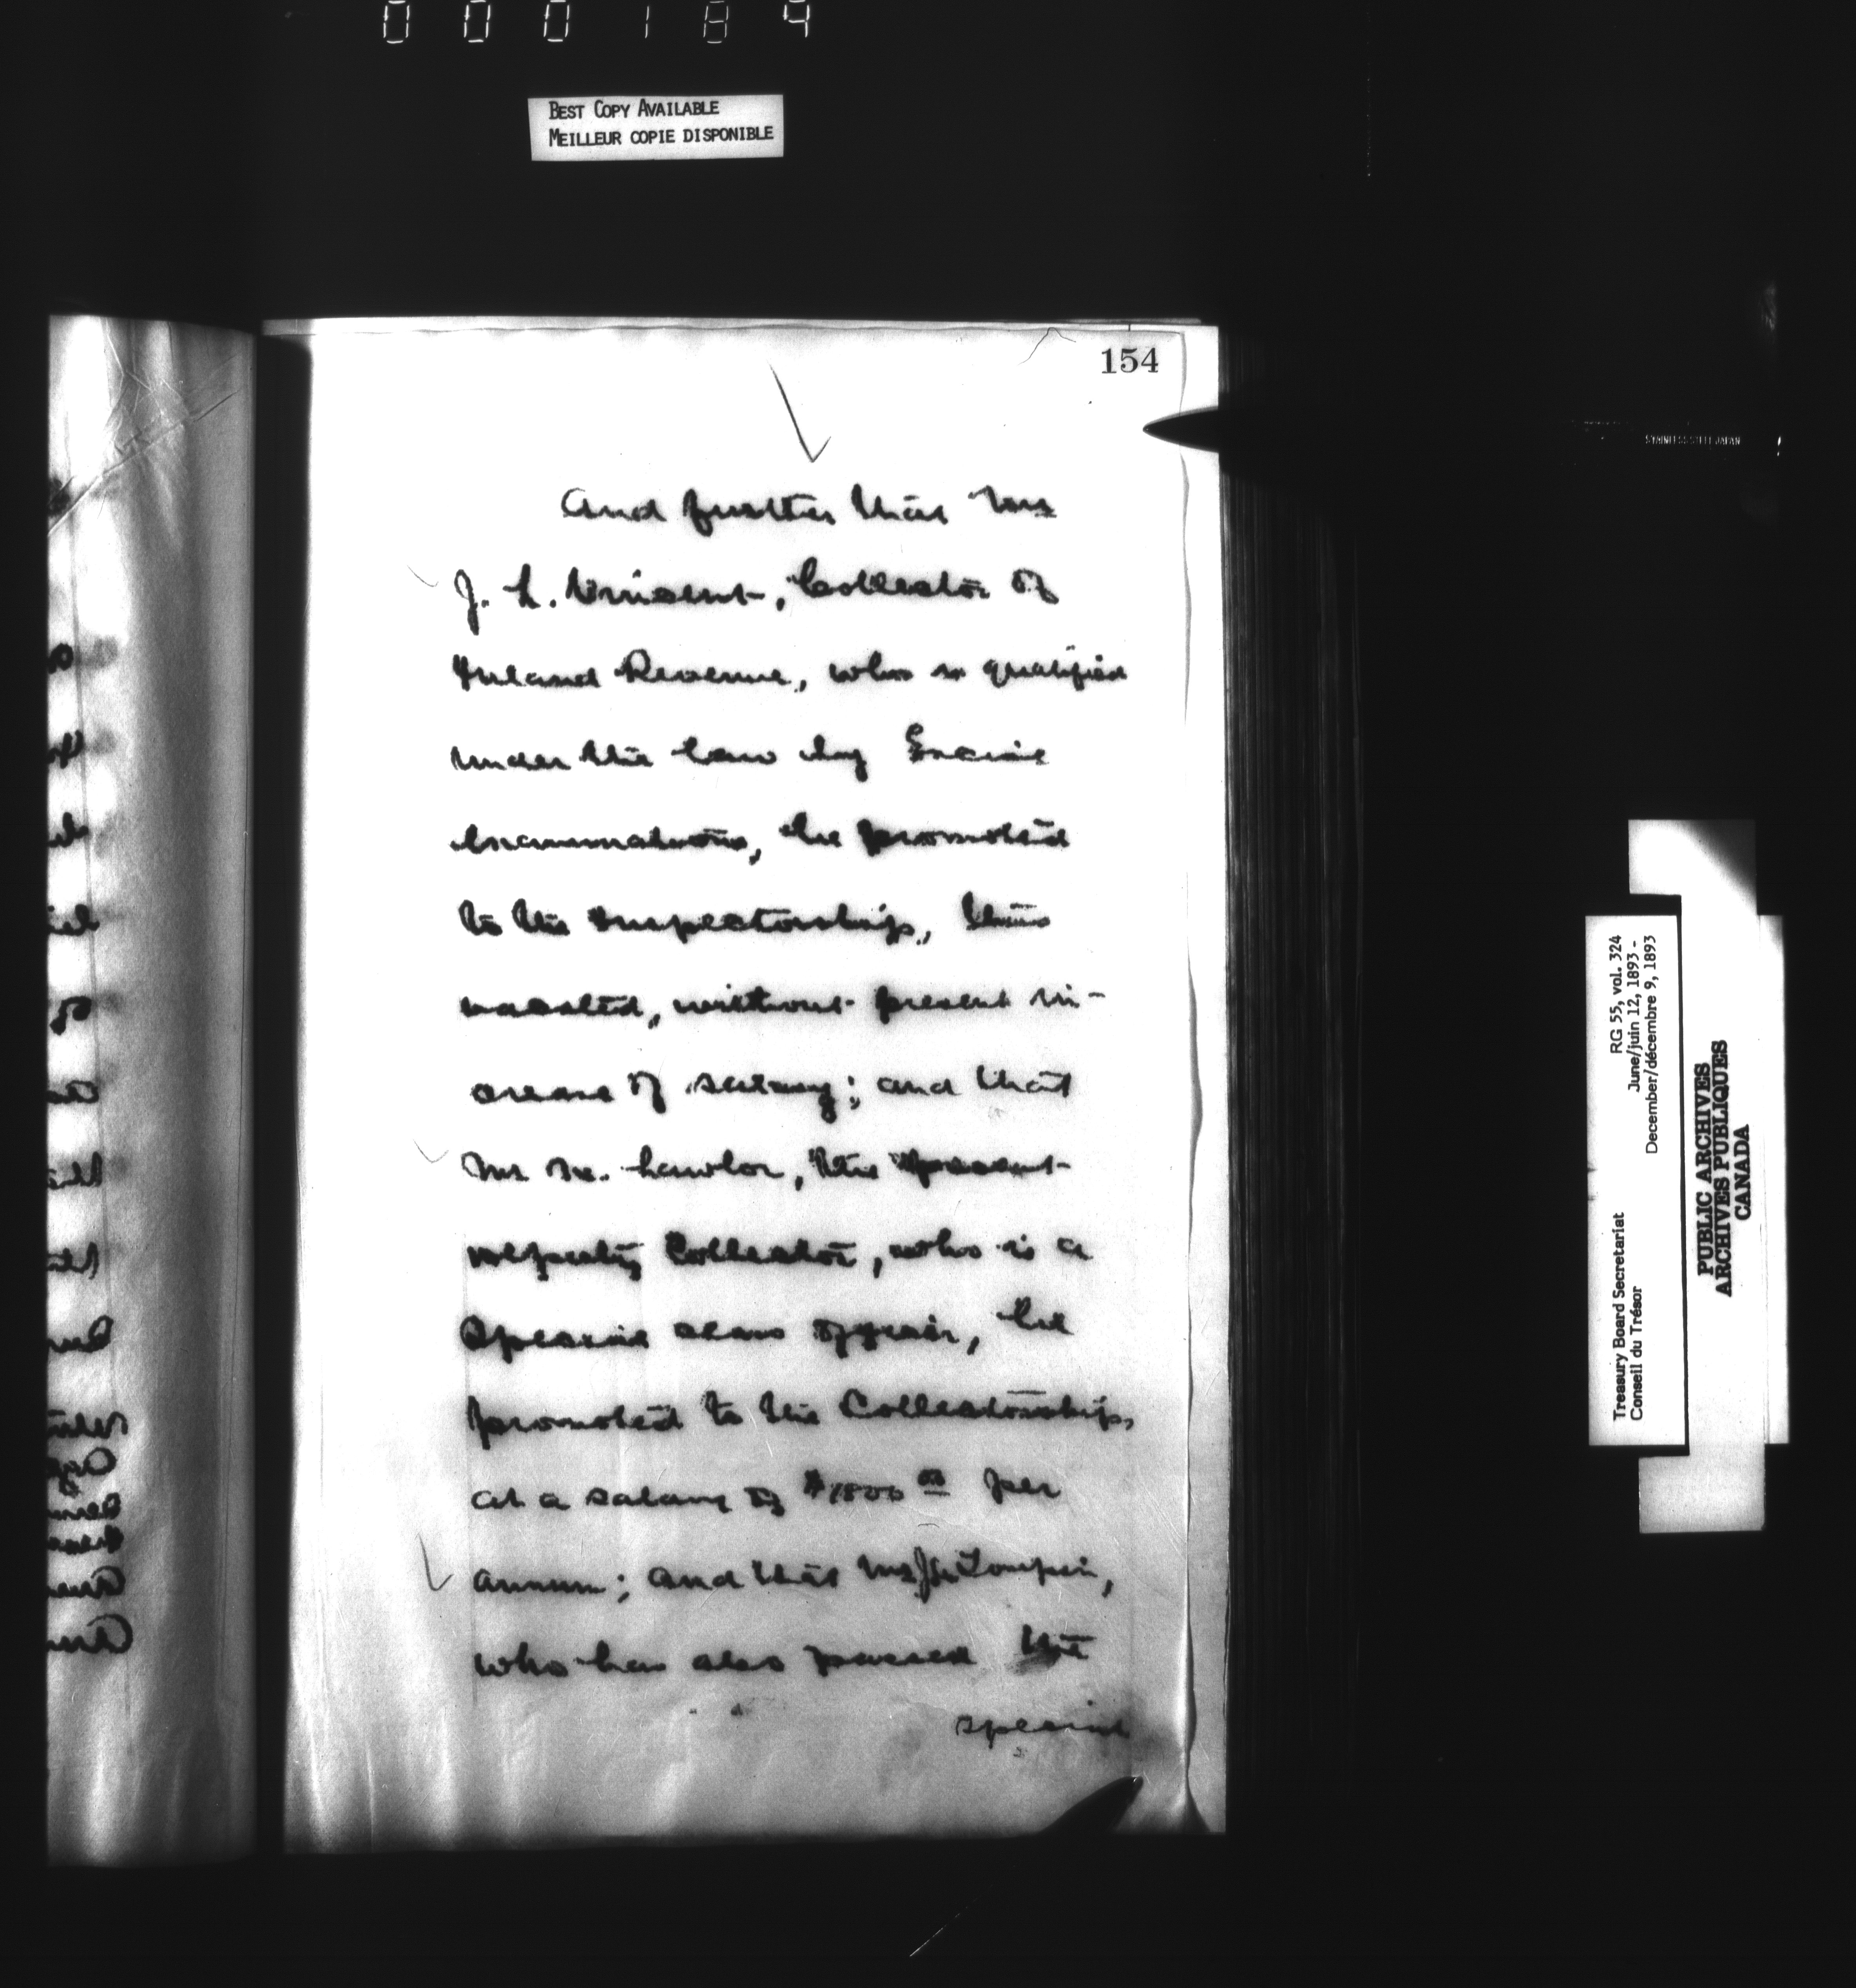 000184
BEST COPY AVAILABLE
MEILLEUR COPIE DISPONIBLE
154
And further that Mr
J. L. Vincent, Collector of
Inland Revenue, who is qualified
under the law by Excise
Examinations, be promoted
to the Inspectorship, thus
vacated, without present in-
crease of salary; and that
Mr Lawlor, the present
Deputy Collector, who is a
Special class officer, be
promoted to the Collectorship,
at a salary of $1800 00 per
annum; and that Mr
who has also passed the
special
STAINLESS STEEL JAPAN
Treasury Board Secretariat RG 55, vol. 324
Conseil du Trésor June/juin 12, 1893 -
December/décembre 9, 1893
PUBLIC ARCHIVES
ARCHIVES PUBLIQUES
CANADA